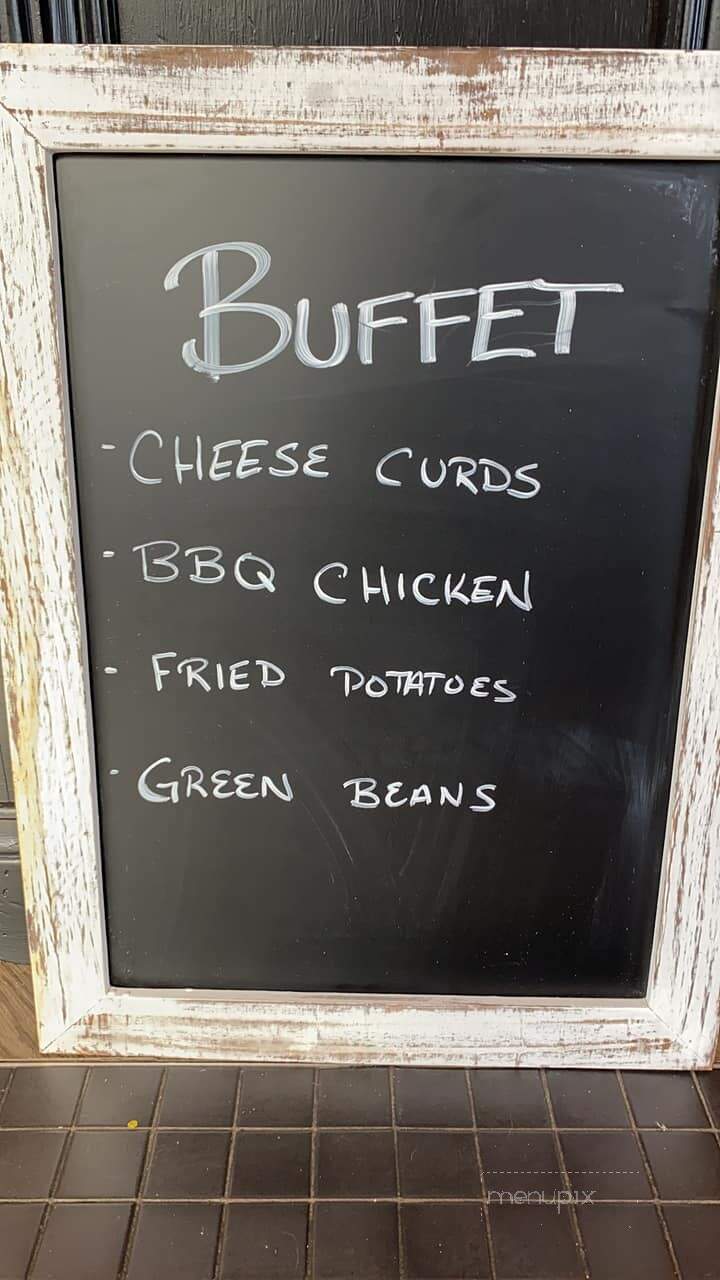 BUFFET
- CHEESE CURDS
- BBQ CHICKEN
- FRIED POTATOES
- GREEN BEANS
menupix